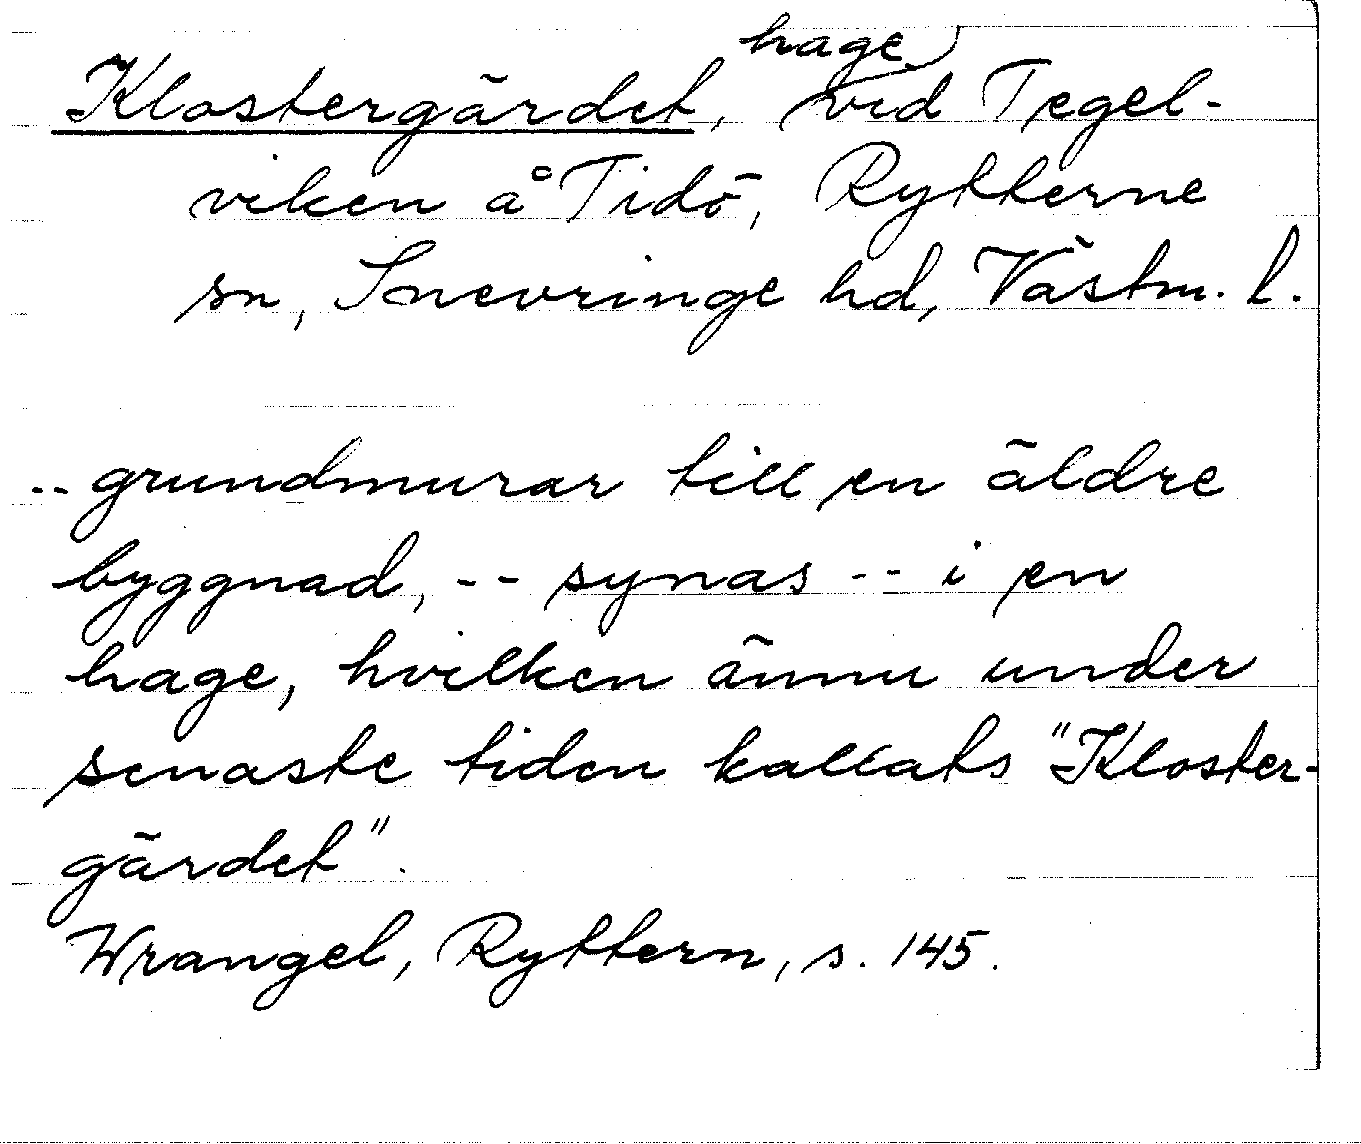 Klostergärdet, hage vid Tegel-
viken å Tidö, Rytterne
sn, Snevringe hd, Västm. l.
-- grundmurar till en äldre
byggnad, -- synas -- i en
hage, hvilken ännu under
senaste tiden kallats "Kloster-
gärdet".
Wrangel, Ryttern, s. 145.